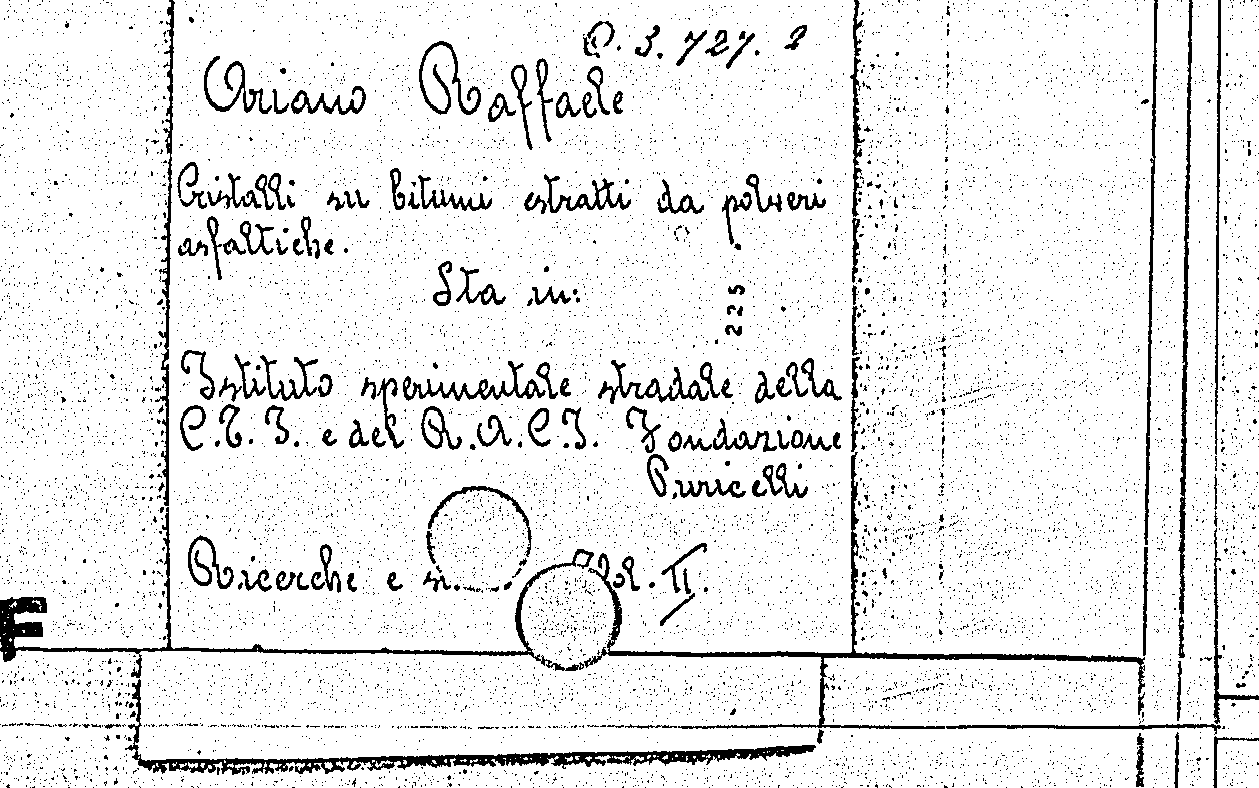 C. 3. 727. 2
Ariano Raffaele
Cristalli su bitumi estratti da polveri
asfaltiche.
Sta in:
225
Istituto sperimentale stradale della
C.T.I. e del R.A.C.I. Fondazione
Puricelli
Ricerche e II.